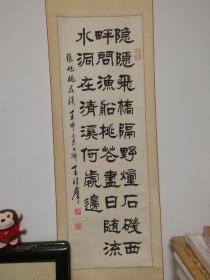 隱隱飛橋隔野煙石磯西
畔問漁船桃花盡日隨流
水洞在清溪何處邊
張旭桃花溪